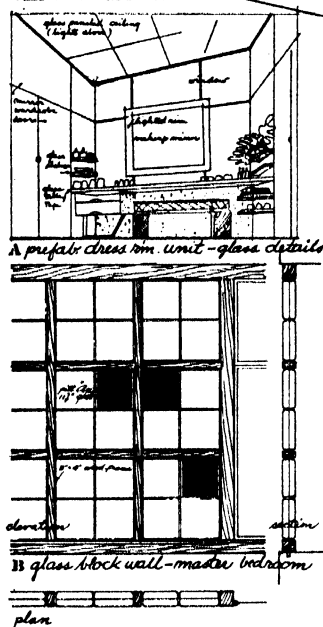 glass paneled ceiling
(lights above)
window
mirror
wardrobe
doors
lighted rim
makeup mirror
glass
glass
A prefab dress rm. unit - glass details
elevation
section
B glass block wall - master bedroom
plan